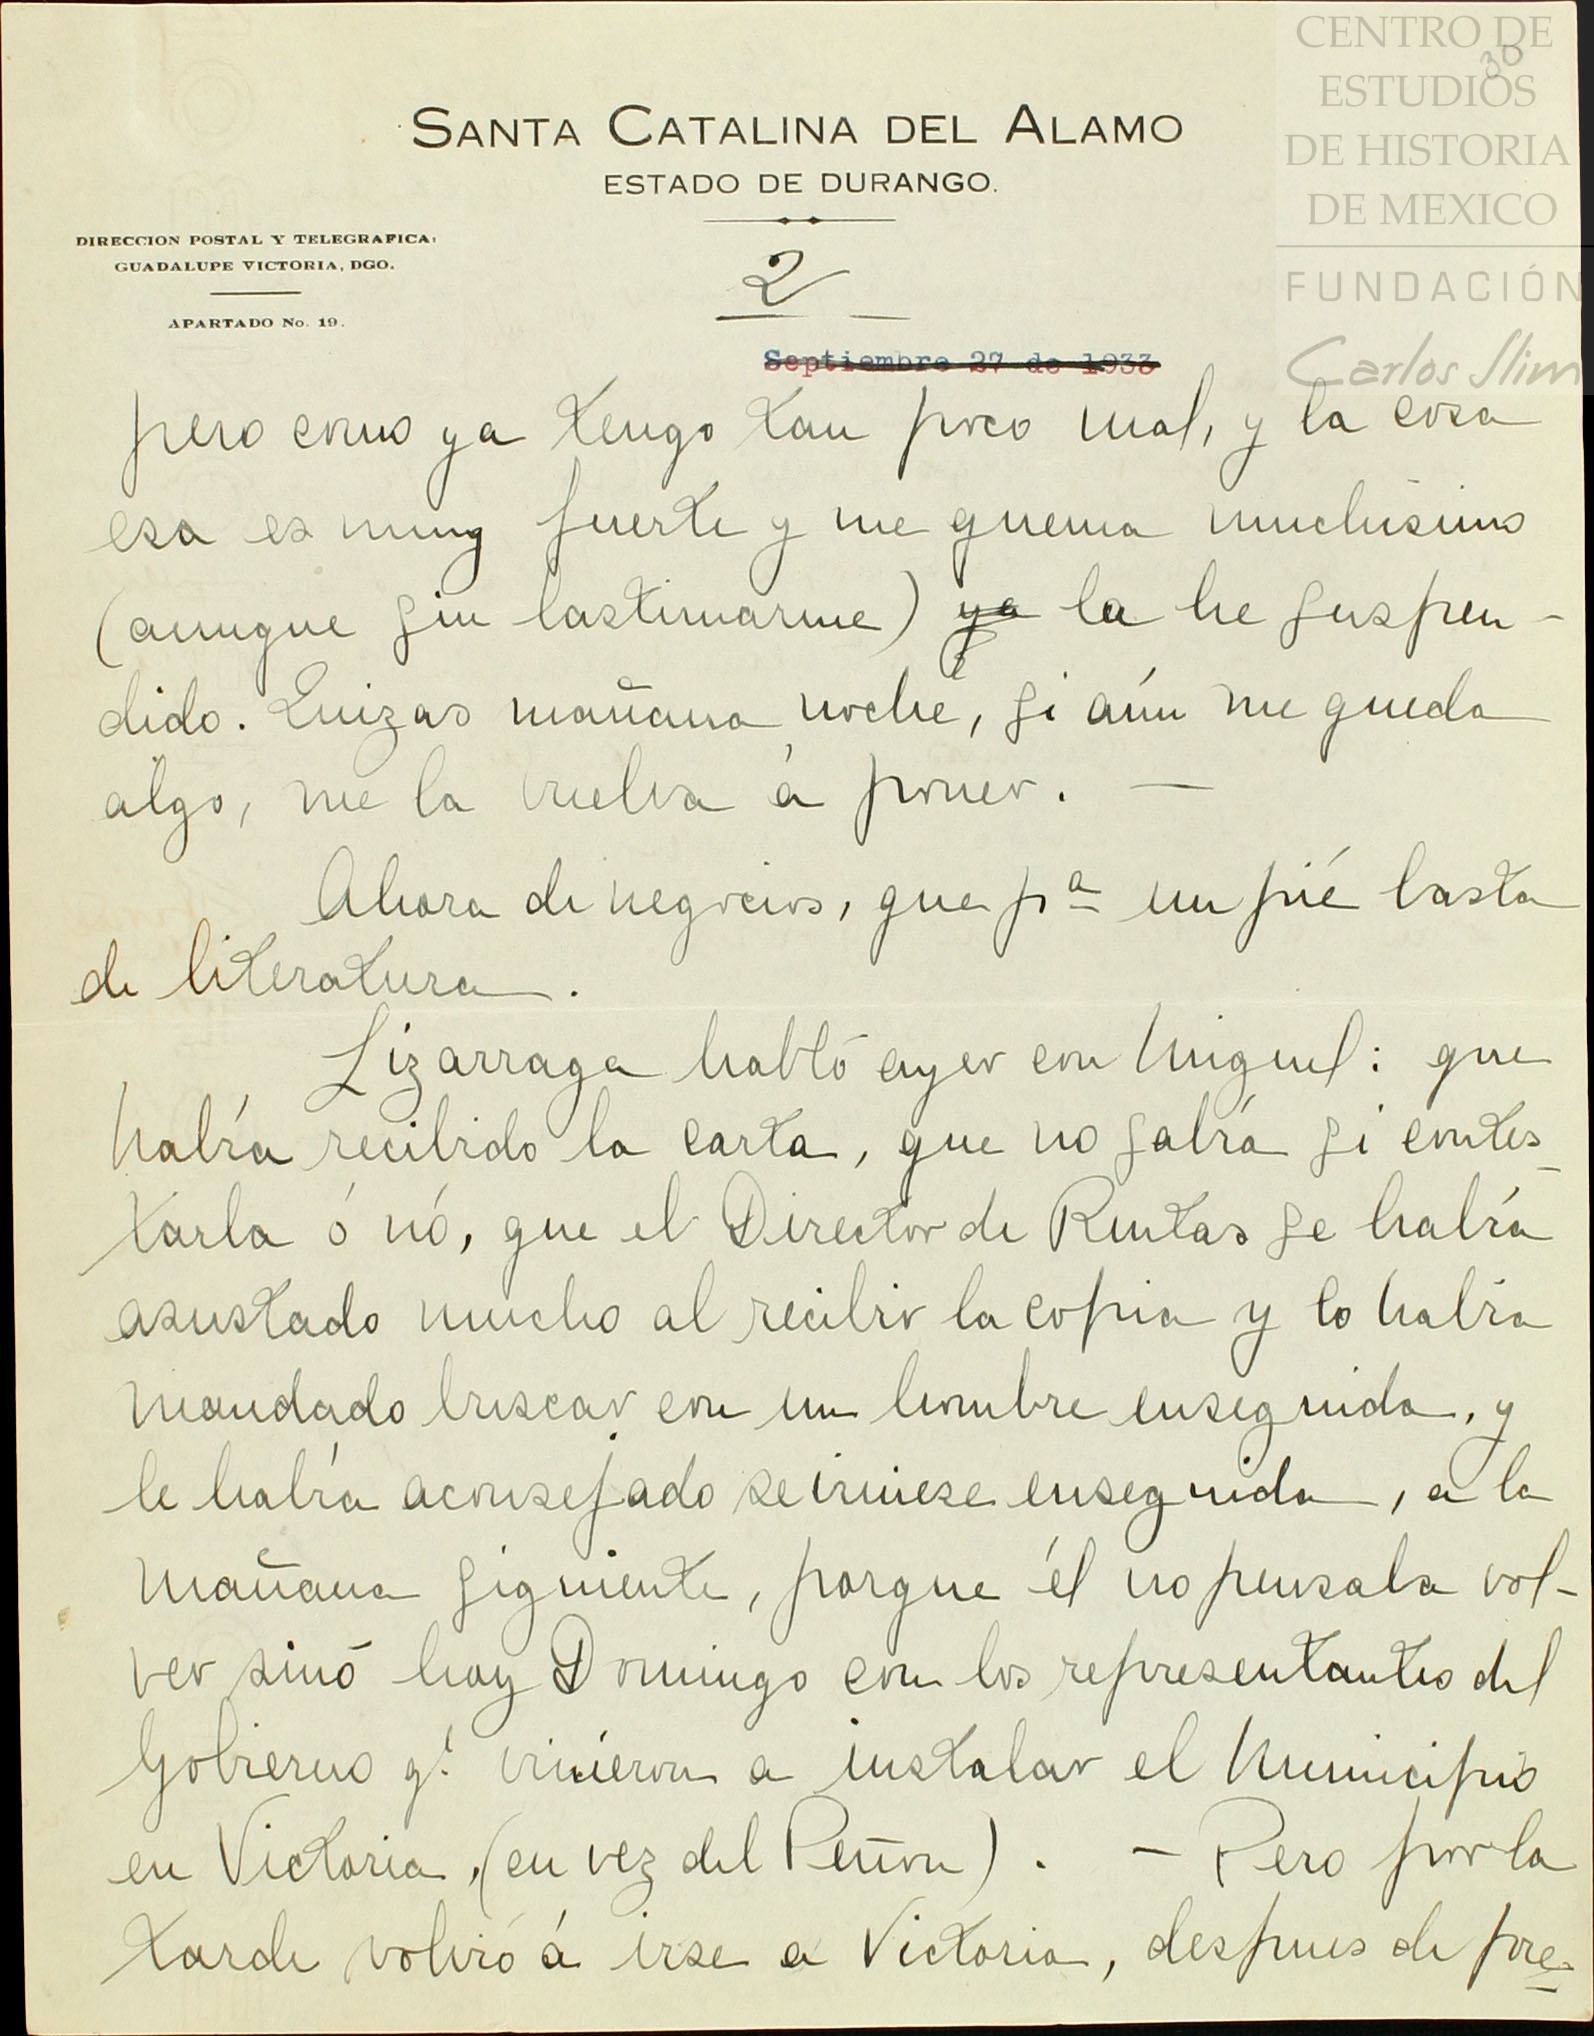 CENTRO DE
ESTUDIOS
DE HISTORIA
DE MEXICO
FUNDACIÓN
Carlos Slim
30
SANTA CATALINA DEL ALAMO
ESTADO DE DURANGO.
DIRECCION POSTAL Y TELEGRAFICA:
GUADALUPE VICTORIA, DGO.
APARTADO No. 19.
2
Septiembre 27 de 1933
pero como ya tengo tan poco mal, y la cosa
esa es muy fuerte y me quema muchísimo
(aunque sin lastimarme) ya la he suspen-
dido. Quizas mañana noche, si aún me queda
algo, me la vuelva á poner. —
Ahora de negocios, que pª un pié basta
de literatura.
Lizarraga habló ayer con Miguel: que
había recibido la carta, que no sabía si contes-
tarla ó nó, que el Director de Rentas se había
asustado mucho al recibir la copia y lo había
mandado buscar con un hombre enseguida, y
le había aconsejado se viniese enseguida, a la
mañana siguiente, porque él no pensaba vol-
ver sinó hoy Domingo con los representantes del
Gobierno q! vinieron a instalar el Municipio
en Victoria, (en vez del Peñon). — Pero por la
tarde volvió á irse a Victoria, despues de pre-